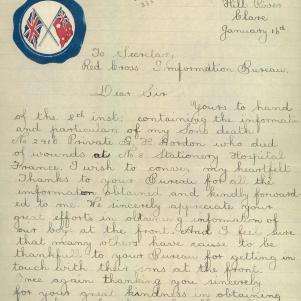 Hill River
Clare
January 16th
To Secretary
Red Cross Information Bureau.
Dear Sir
Yours to hand
of the 8th inst: containing the informatio
and particular of my Sons death
No 2918 Private G. H. Gordon who died
of wounds at No 8 Stationery Hospital
France, I wish to convey my heartfelt
Thanks to your Bureau for all the
information obtained and kindly forward
ed to me. We sincerely appreciate your
great efforts in obtaining information of
our boy at the front. And I feel sure
that many others have cause to be
thankfull to your Bureau for getting in
touch with their sons at the front.
Once again thanking you sincerely
for your great kindness in obtaining